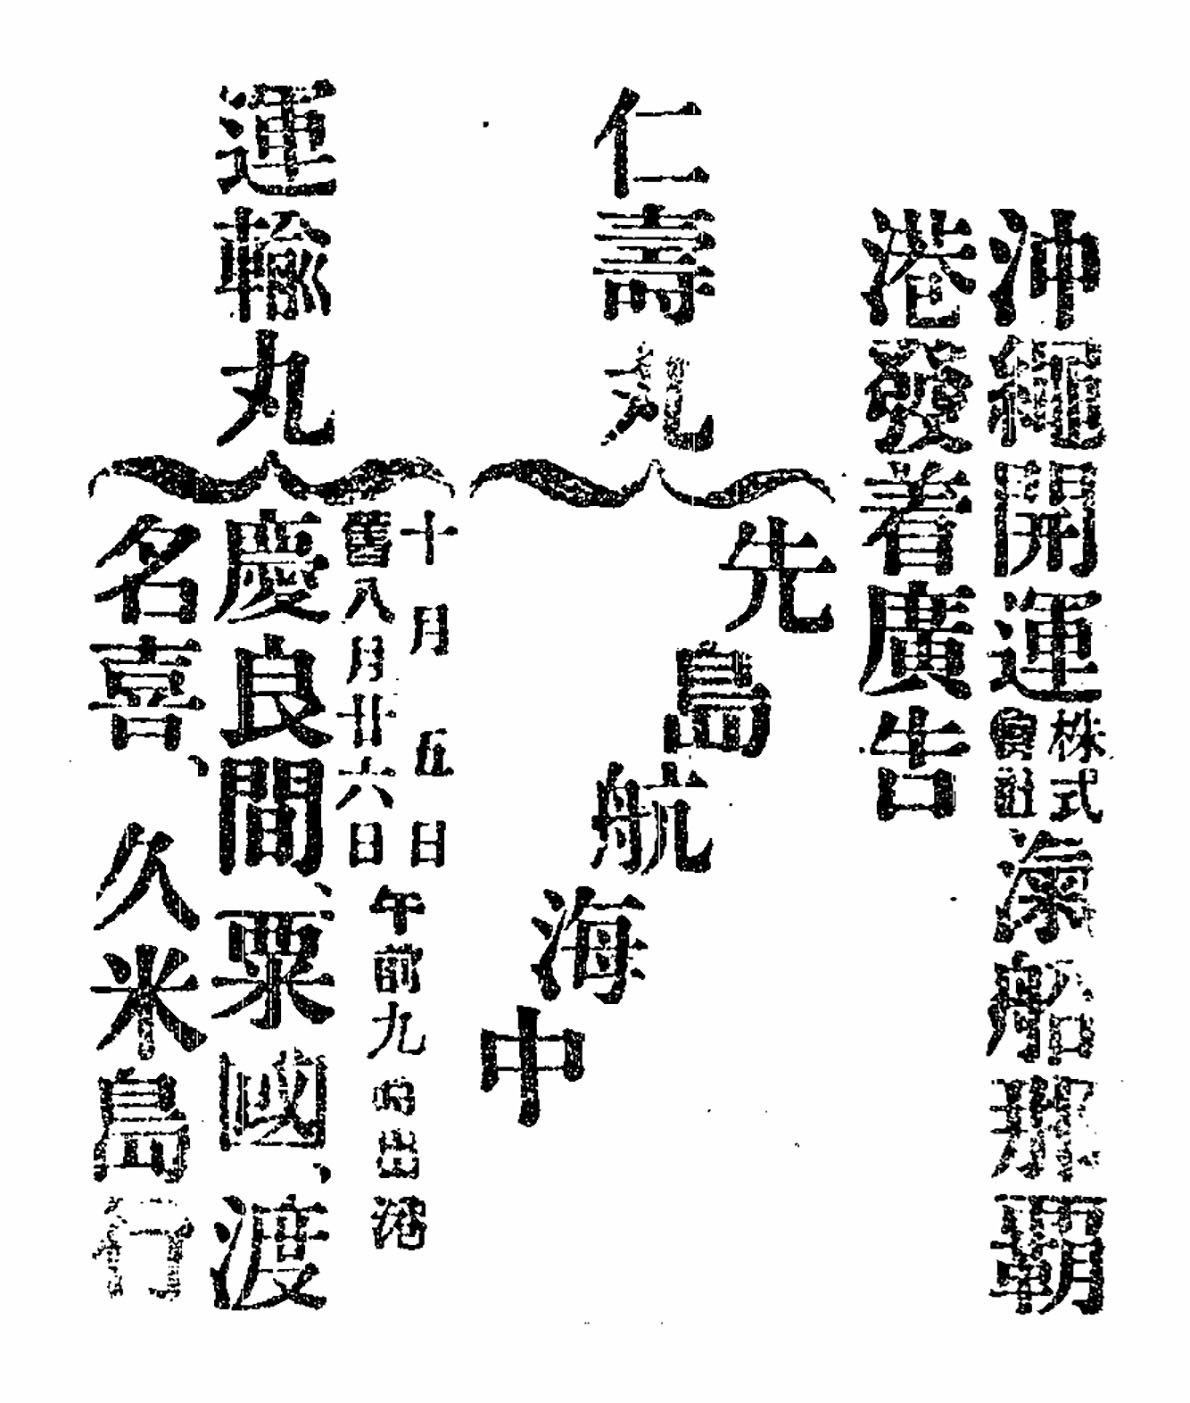 沖縄開運株式會社滊船那覇
港發着廣告
仁壽丸
先島航海中
運輸丸
十月五日
舊八月廿六日
午前九時出港
慶良間、粟國、渡
名喜、久米島行